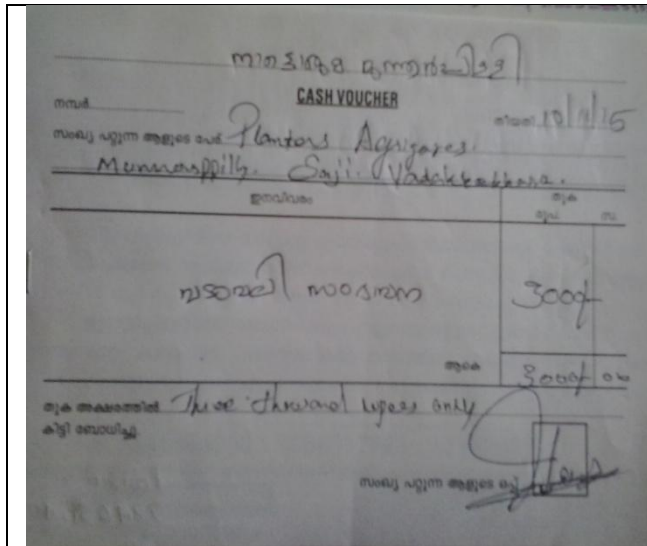 മുന്നൂർപ്പിള്ളി
CASH VOUCHER
നമ്പർ
തിയതി
സംഖ്യ പറ്റുന്ന ആളുടെ പേർ Planters Agrigares
Munnurppilly. Saji. Vadakkekkara.
ഇനവിവരം തുക
രൂപ. സ.
വടംവലി സംഭാവന 3000/-
ആകെ 3000/- 00
തുക അക്ഷരത്തിൽ Three thousand rupees only
കിട്ടി ബോധിച്ചു.
സംഖ്യ പറ്റുന്ന ആളുടെ ഒപ്പ്